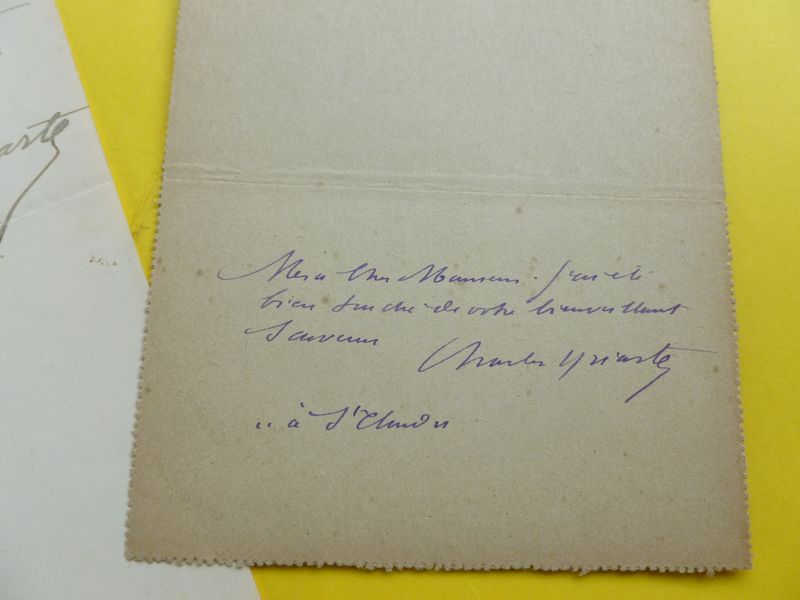 Merci Cher Monsieur. J'ai été
bien touché de votre bienveillant
Souvenir
Charles Yriarte
à St
arte